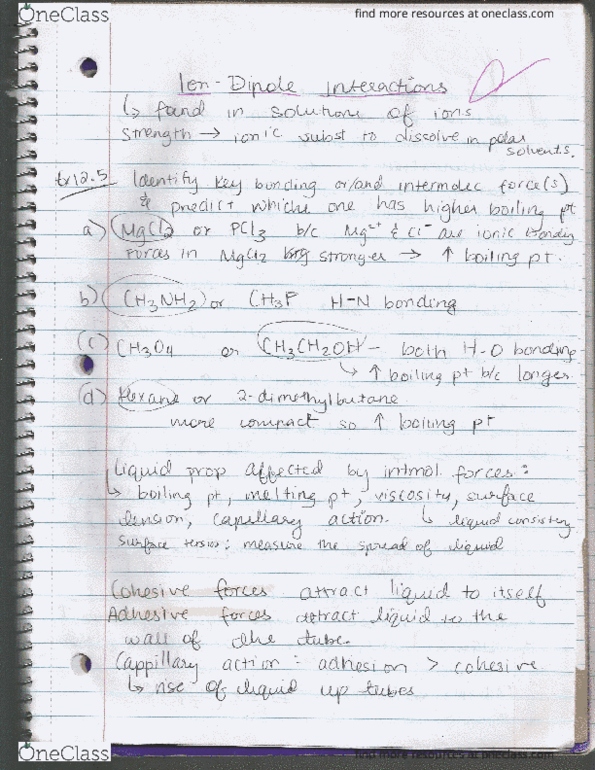 OneClass
find more resources at oneclass.com
Ion-Dipole Interactions
↳ found in solutions of ions
Strength → ionic subst to dissolve in polar
solvents.
Ex 12.5 Identify key bonding or/and intermolec force(s)
& predict which one has higher boiling pt
a) MgCl2 or PCl3 b/c Mg2+ & Cl- are ionic bonding
Forces in MgCl2 stronger → ↑ boiling pt.
b) CH3NH2 or CH3F H-N bonding
(c) CH3O4 or CH3CH2OH - both H-O bonding
↳ ↑ boiling pt b/c longer
(d) Hexane or 2-dimethylbutane
more compact so ↑ boiling pt
Liquid prop affected by intmol. forces:
↳ boiling pt, melting pt, viscosity, surface
tension, capillary action. ↳ liquid consistency
surface tension: measure the spread of liquid
Cohesive forces attract liquid to itself
Adhesive forces attract liquid to the
wall of the tube.
Cappillary action: adhesion > cohesive
↳ rise of liquid up tubes
OneClass
find more resources at oneclass.com